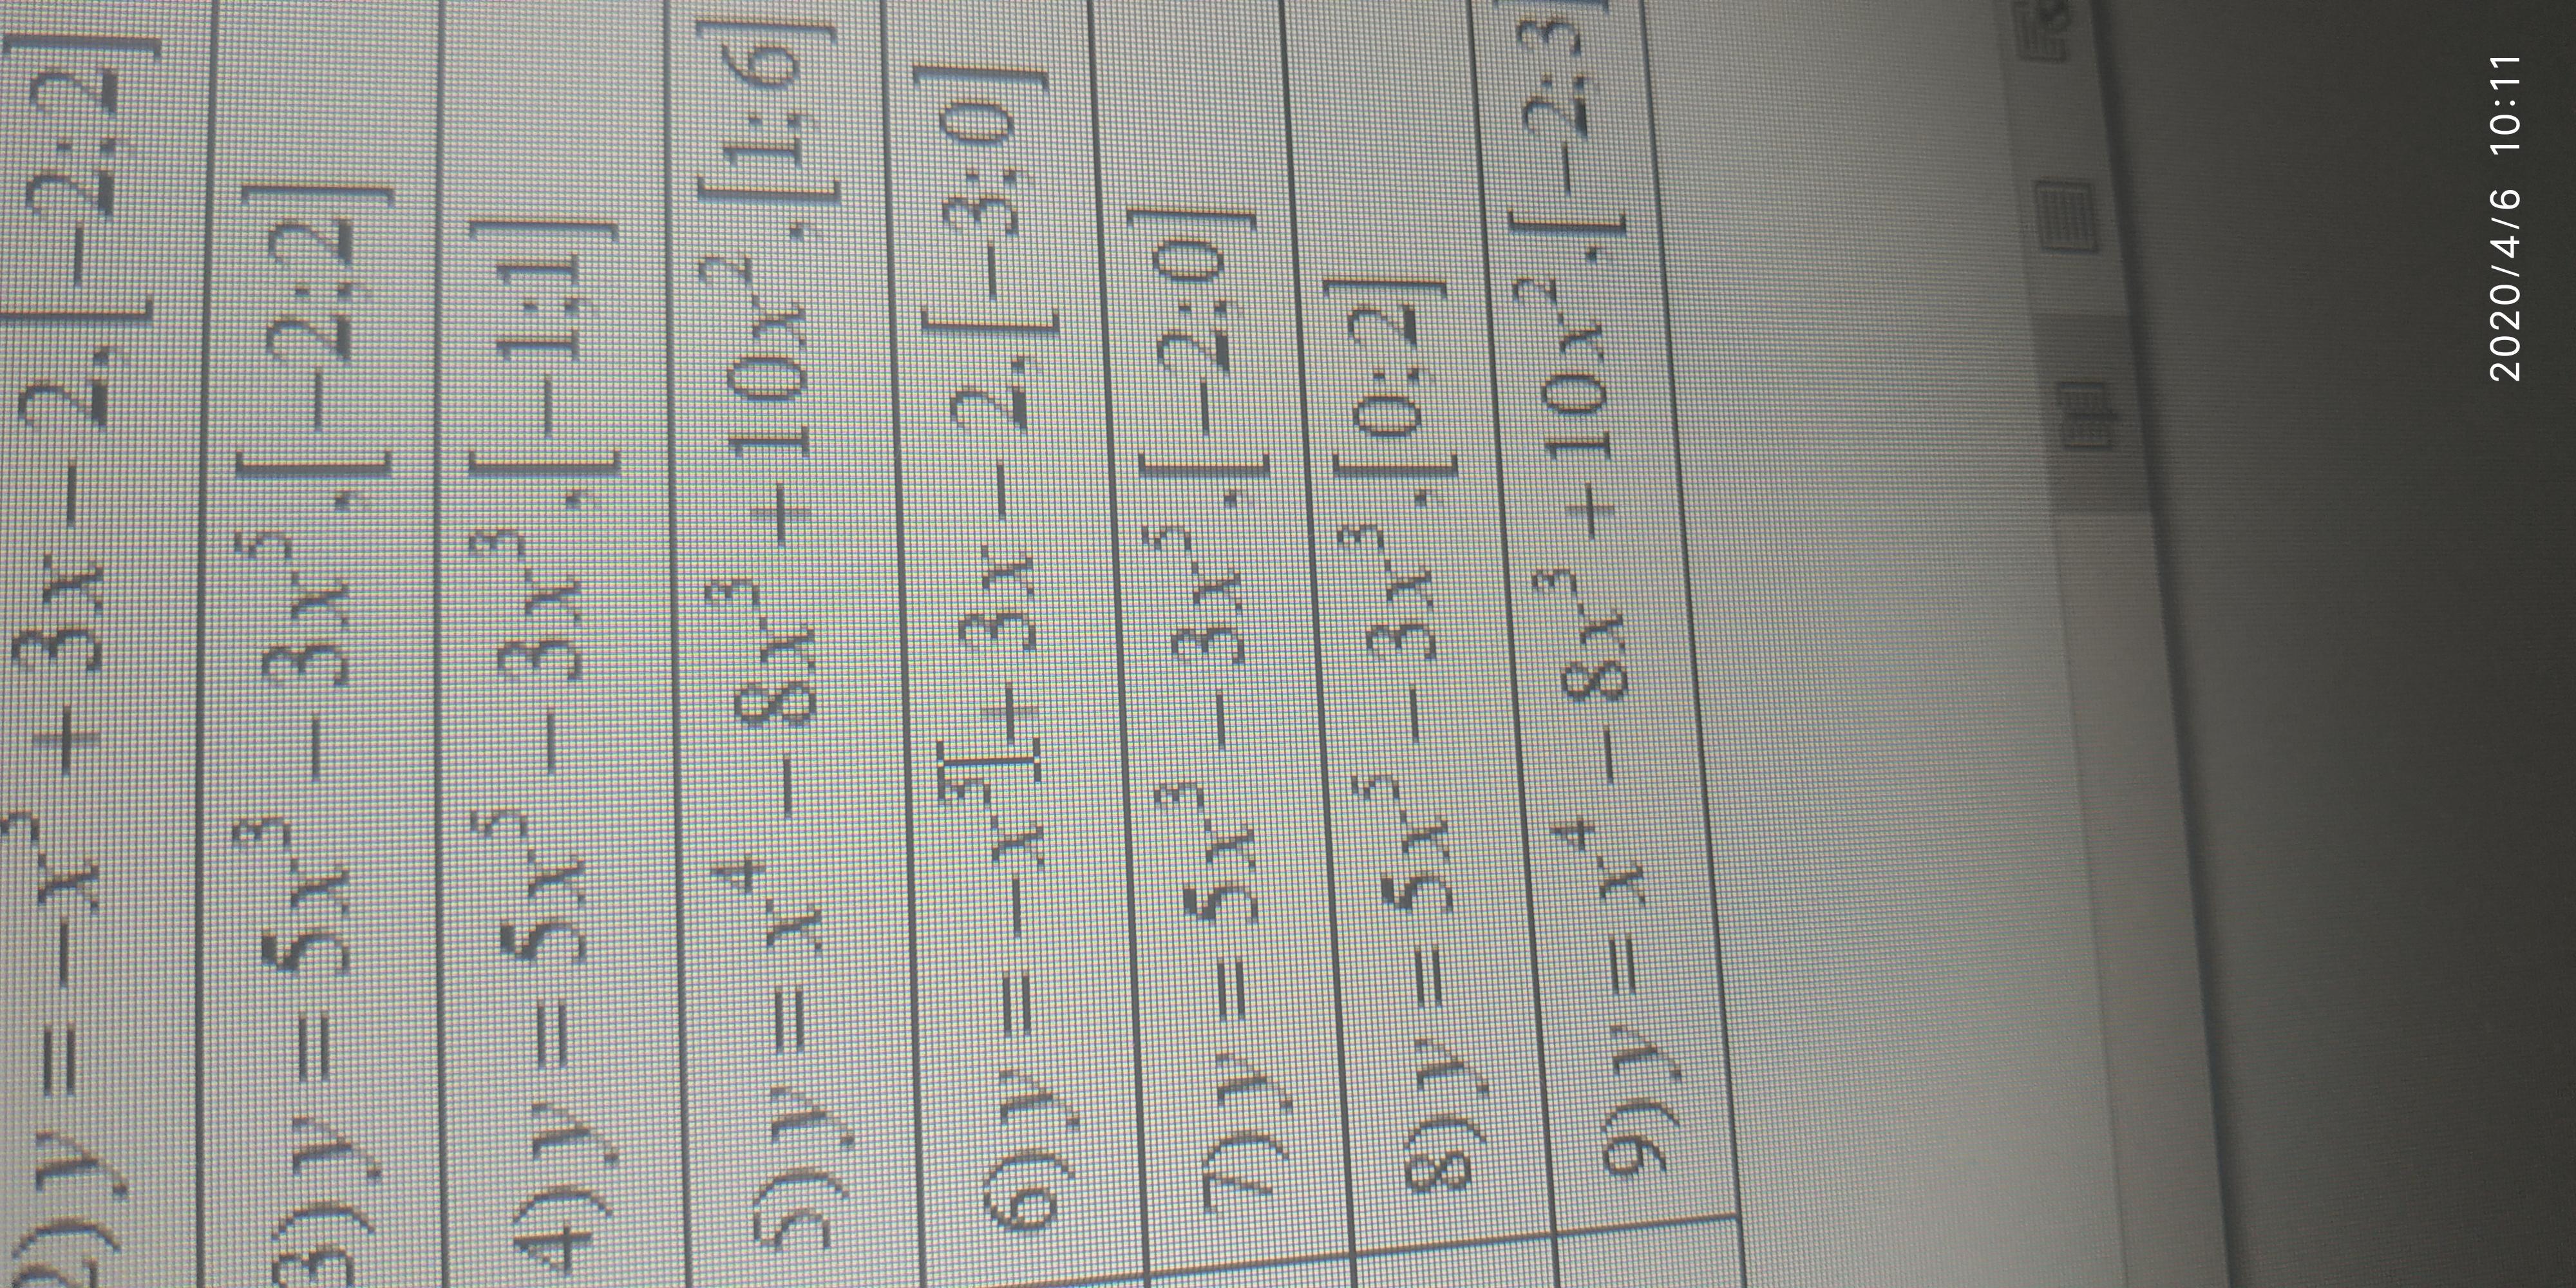 2) y = −x³ + 3x − 2, [−2; 2]
3) y = 5x³ − 3x⁵, [−2; 2]
4) y = 5x⁵ − 3x³, [−1; 1]
5) y = x⁴ − 8x³ + 10x², [1; 6]
6) y = −x³ + 3x − 2, [−3; 0]
7) y = 5x³ − 3x⁵, [−2; 0]
8) y = 5x⁵ − 3x³, [0; 2]
9) y = x⁴ − 8x³ + 10x², [−2; 3]
2020/4/6 10:11